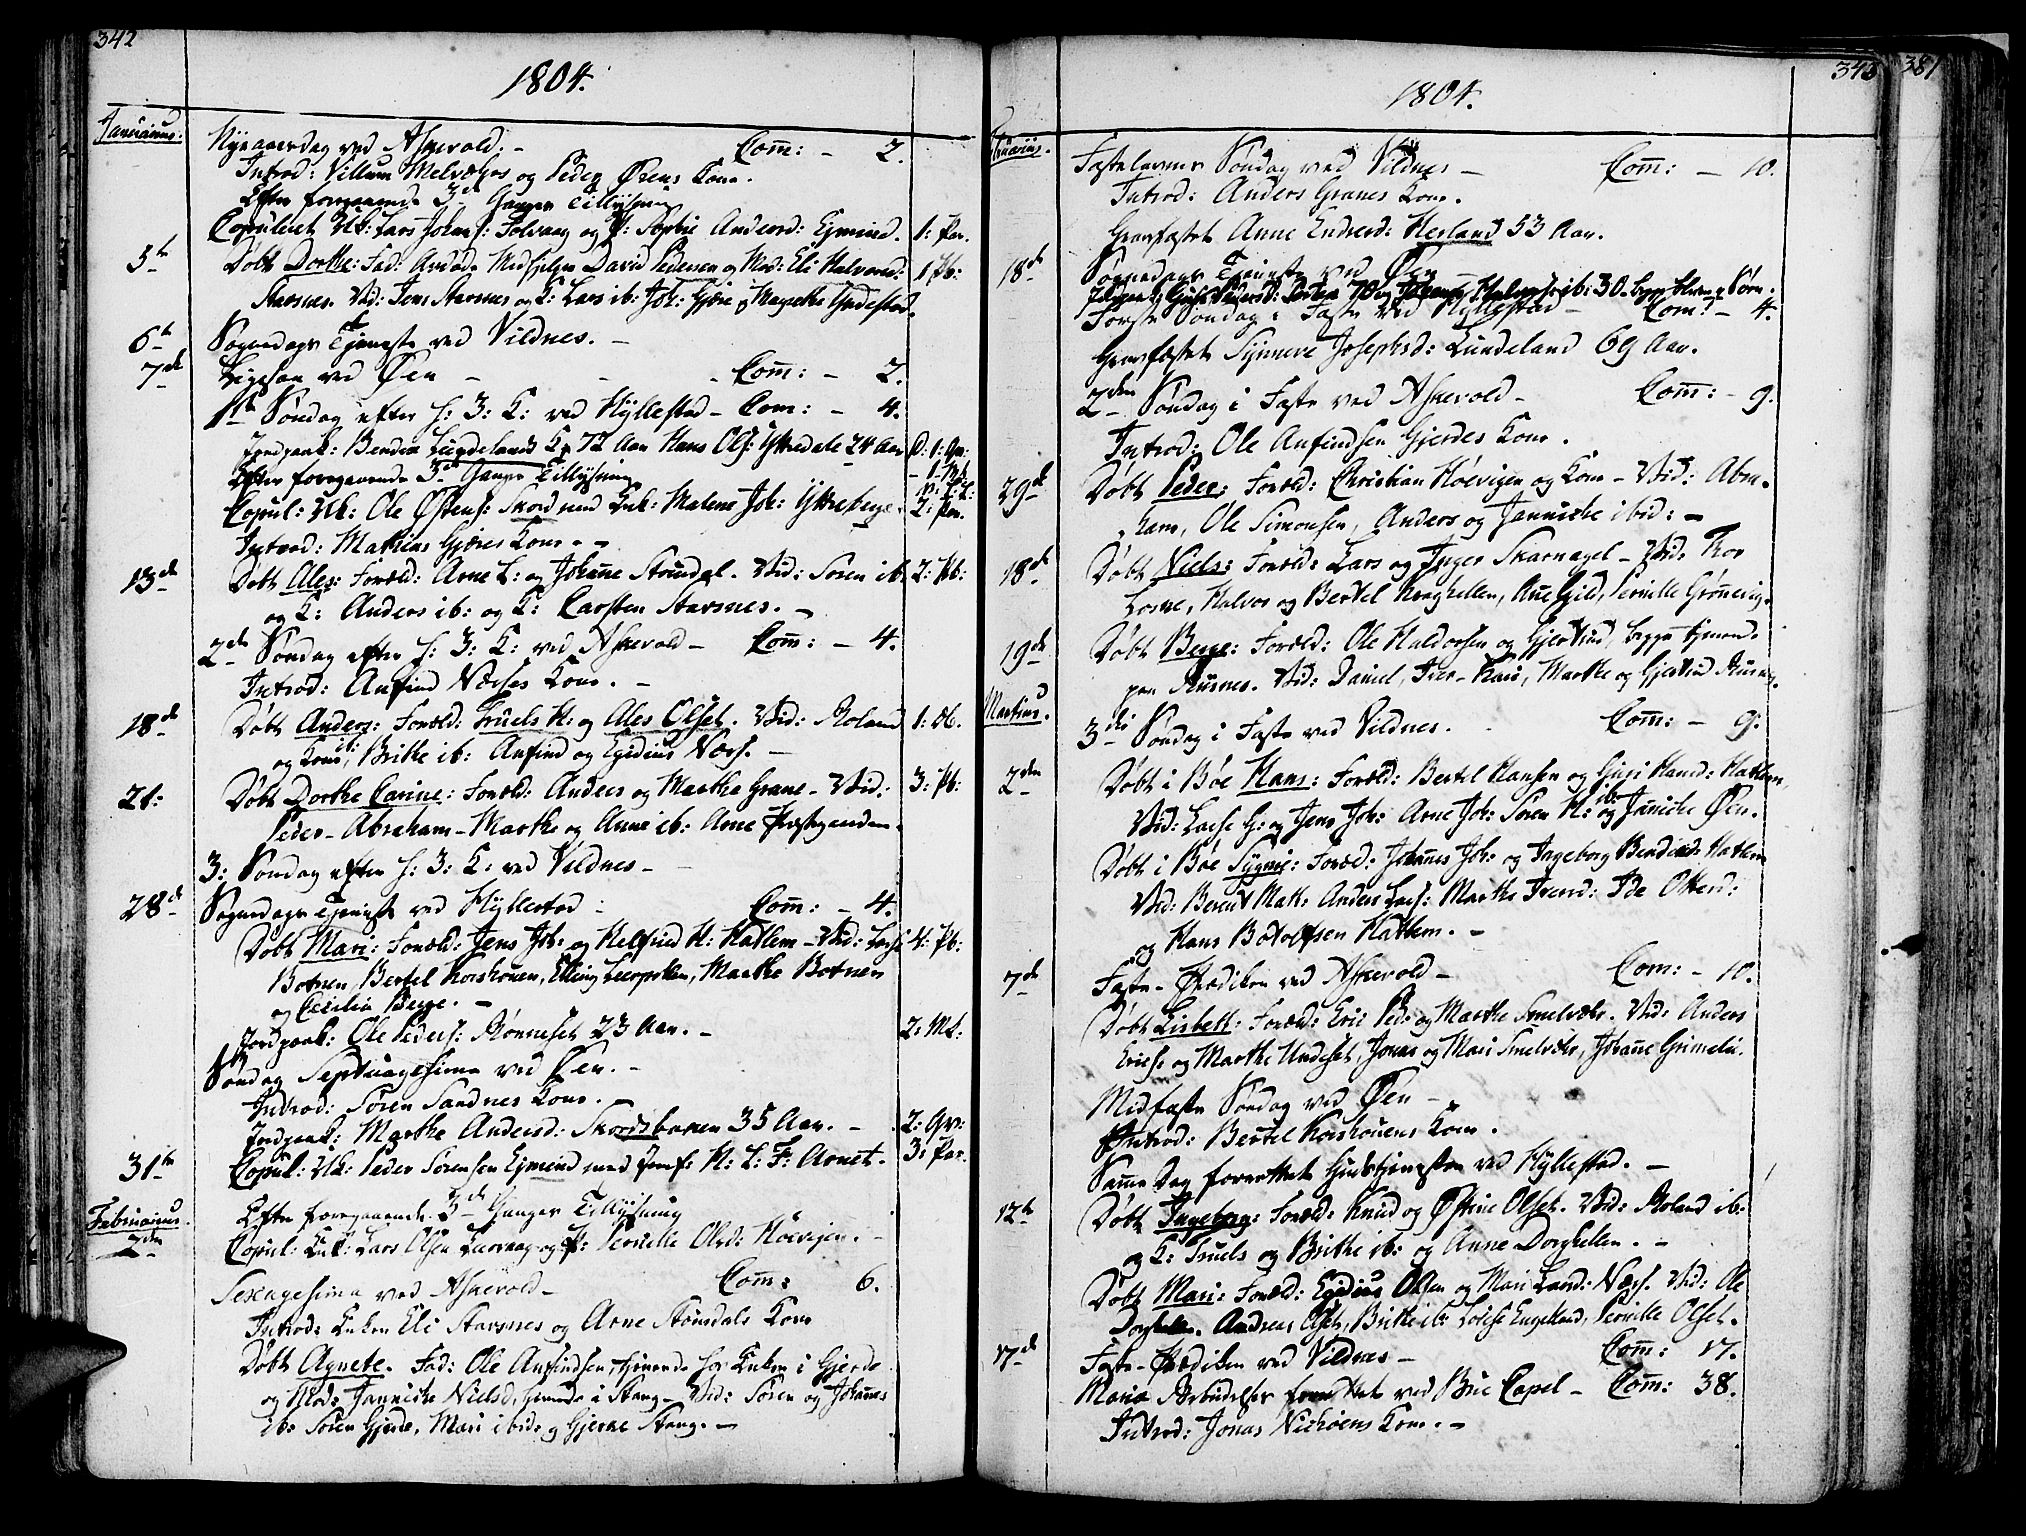 342
1804.
Januarius.
Nyeaarsdag ved Askevold. - Com: - 2.
Introd: Villum Melværs og Peder Ørens Kone.
Efter foregaaende 3de Ganges Tillysning
Copuleret Uk: Lars Johns: Folvaag og P: Sophie Andersd: Ejmind. 1: Par.
5te Døbt Dorthe: Fad: David Pedersen og Mod: Eli Halvorsd: 1 Pb:
Stavsnes. Vid: Jens Stavsnes og K: Lars ib: Joh: Gjøre og Magrethe Yndestad.
6te Søgnedags Tjeneste ved Vildnes. -
7de Ligesaa ved Øen - Com: - 2.
1te Søndag efter H: 3: K: ved Hyllestad - Com: - 4.
Jordpaak: Lundeland K. 72 Aar Hans Ols: Yttredale 24 Aar
Efter foregaaende 3de Ganges Tillysning
Copul: Uk: Ole Østens: Skord med Enk: Malene Joh: Yttreberge. 2: Par.
Introd: Mathias Gjøres Kone. -
13de Døbt Ales: Foræld: Arne L: og Johanne Stondal. Vid: Søren ib: 2: Pb:
og K: Anders ib: og K: Carsten Stavsnes. -
2de Søndag efter H: 3: K: ved Askevold - Com: - 4.
Introd: Anfind Værses Kone. -
18de Døbt Anders: Foræld: Truels H: og Ales Olset. Vid: Roland 1: Db.
og Kone ib: Brithe ib: Anfind og Egidius Værs. -
21: Døbt Dorthe Carine: Foræld: Anders og Marthe Grane - Vid: 3: Pb:
Peder - Abraham - Marthe og Anne ib: Arne Præstegarden.
3: Søndag efter H: 3: K: ved Vildnes -
28de Søgnedags Tjeneste ved Hyllestad - Com: - 4.
Døbt Mari: Foræld: Jens Joh: og Helfried H: Hatlem - Vid: Lasse 4: Pb:
Botnen, Bertel Korshouen, Elling Leerpollen, Marthe Botnen
og Cecilia Berge. -
Jordpaak: Ole Peders: Rønneset 23 Aar. - 2: Mk:
Søndag Septuagesima ved Øen. -
Introd: Søren Sandnes Kone.
Jordpaak: Marthe Andersd: Skordsbakken 35 Aar. - 2: Qv:
31te Copul: Uk: Peder Sørensen Ejmind med Jomf: H: L: F: Arnet. 3: Par.
Februarius.
Efter foregaaende 3de Ganges Tillysning
2den Copul: Enk: Lars Olsen Leervaag og P: Pernille Olsd: Høevigen. -
Sexagesima ved Askevold - Com: 6.
Introd: Enken Eli Stavsnes og Arne Stønsdals Kone
Døbt Agnete. Fad: Ole Anfindsen, tjenende hos Enken i Gjerde
og Mod: Jannicke Nielsd, hiemme i Stang - Vid: Søren og Johannes
ib: Søren Gjerde, Mari ibid: og Gjerke Stang. -
343
381
1804.
Fastelavns Søndag ved Vildnes - Com: - 10.
Introd: Anders Granes Kone.
Gravfæstet Anne Endresd: Hesland 53 Aar.
18de Søgnedags Tjeneste ved Øen
Første Søndag i Faste ved Hyllestad - Com: - 4.
Gravfæstet Synneve Josephsd: Lundeland 69 Aar.
2den Søndag i Faste ved Askevold - Com: - 9.
Introd: Ole Anfindsen Gjerdes Kone.
29de Døbt Peder: Foræld: Christian Høevigen og Kone - Vid: Abra-
ham, Ole Simonsen, Anders og Jannicke ibid: -
18de Døbt Niels: Foræld: Lars og Inger Skarnagel - Vid: Thor
Losne, Halvor og Bertel Kraghellen, Anne Gild, Pernille Grønevig.
19de Døbt Berge: Foræld: Ole Haldorsen og Gjertrud, begge hjemme
paa Rusnes. Vid: Daniel, Iver - Kari, Marthe og Gjertrud Rusnes.
Martius.
3die Søndag i Faste ved Vildnes. Com: - 9.
2den Døbt i Bøe Hans: Foræld: Bertel Hansen og Guri Hansd: Hatlem,
Vid: Lasse G: og Jens Joh: Arne Joh: Søren H: ib: og Jannicke Øen.
Døbt i Bøe Sygni: Foræld: Johannes Joh: og Ingeborg Hatlem
Vid: Bernt Mat: Anders Las: Marthe Iversd: Ide Ottersd:
og Hans Botolfsen Hatlem. -
7de Faste-Prædiken ved Askevold - Com: - 10.
Døbt Lisbeth: Foræld: Eric Ped: og Marthe Smelvær. Vid: Anders
Erics: og Marthe Undeset, Jonas og Mari Smelvær, Johanne Grimelie.
Midfaste Søndag ved Øen -
Introd: Bertel Korshouens Kone.
Samme Dag forrettet Gudstjeneste ved Hyllestad. -
12te Døbt Ingeborg: Foræld: Knud og Østine Olset. Vid: Roland ib:
og K: Truels og Brithe ib: og Anne Dorghellen. -
Døbt Mari: Foræld: Egidius Olsen og Mari Larsd: Værs. Vid: Ole
Dorghellen, Andreas Olset, Brithe ib: Lovise Engeland, Pernille Olset.
17de Faste-Prædiken ved Vildnes - Com: 17.
Mariæ Bebudelses forrettet ved Bue Capel - Com: 38.
Introd: Jonas Nichøens Kone. -